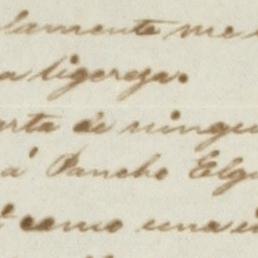 lamente me
a ligereza.
arta de ningu
á Pancho Elgu
como una i